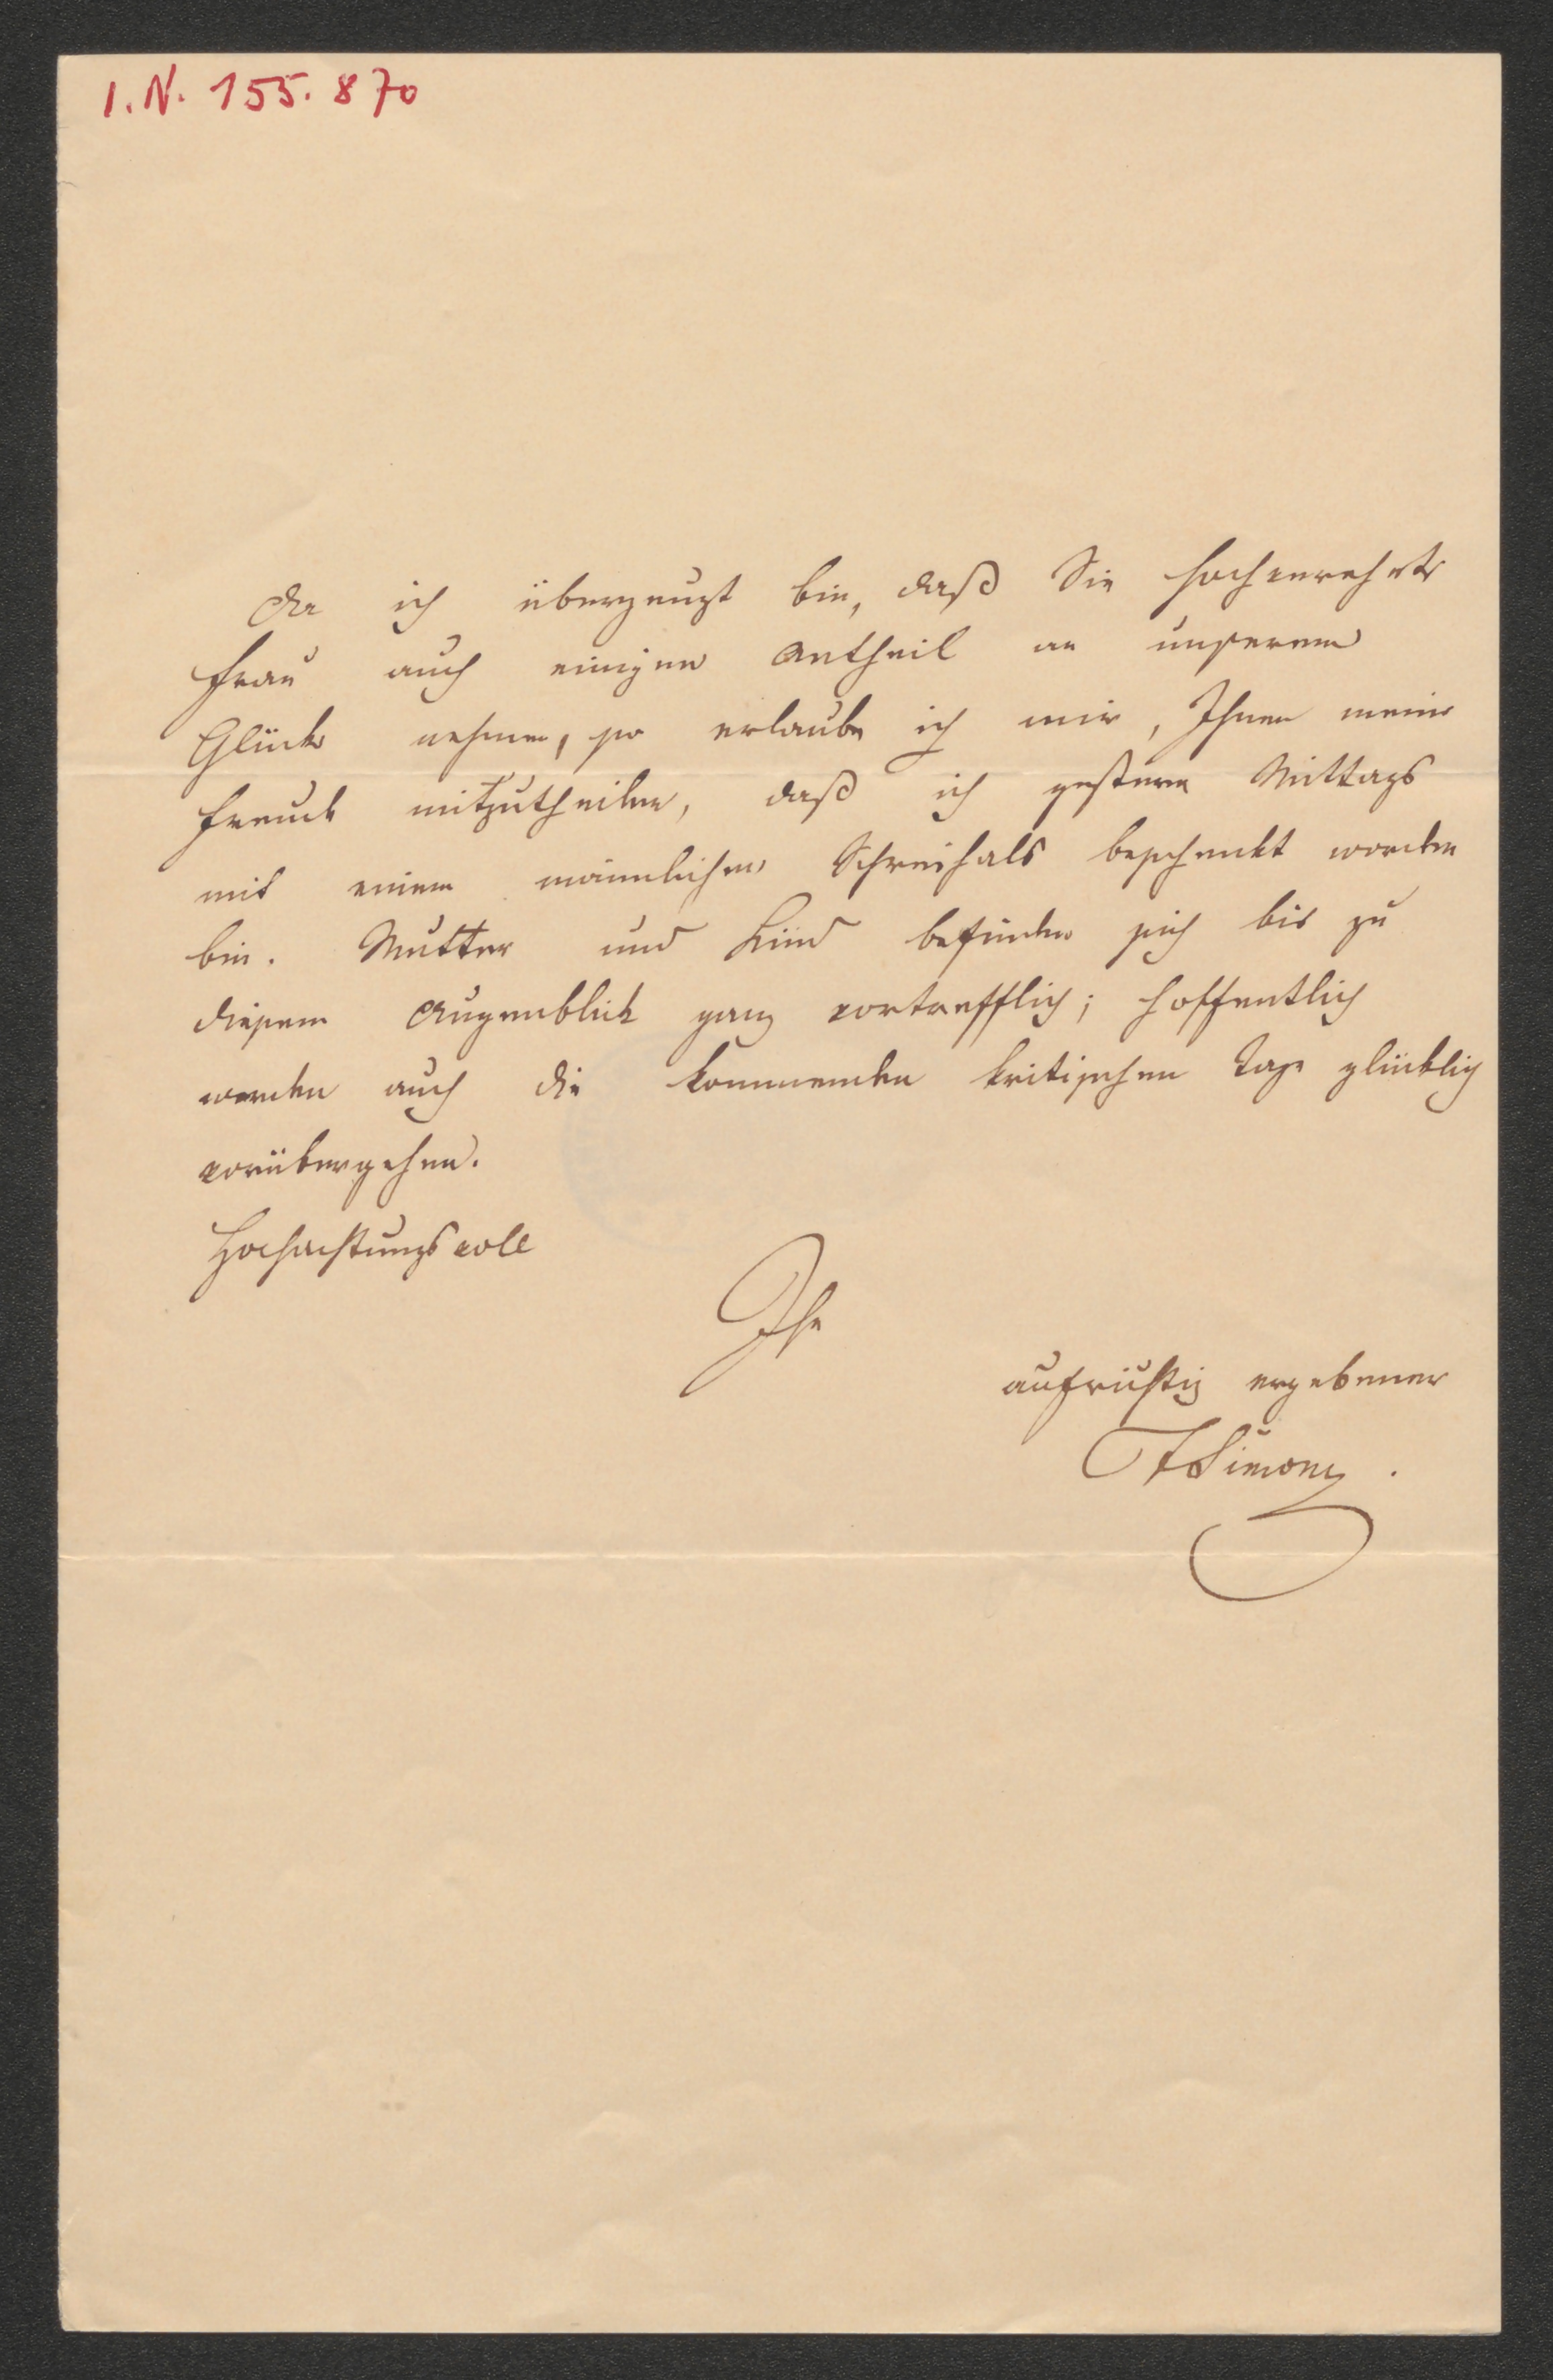 I. N. 155.870
Da ich überzeugt bin, daß Sie hochverehrte
Frau auch einigen Antheil an unserem
Glücke nehmen, so erlaube ich mir, Ihnen meine
Freude mitzutheilen, daß ich gestern Mittags
mit einem männlichen Schreihals beschenkt worden
bin. Mutter und Kind befinden sich bis zu
diesem Augenblick ganz vortrefflich; hoffentlich
werden auch die kommenden kritischen Tage glücklich
vorübergehen.
Hochachtungsvoll
Ihr
aufrichtig ergebener
FSimony.